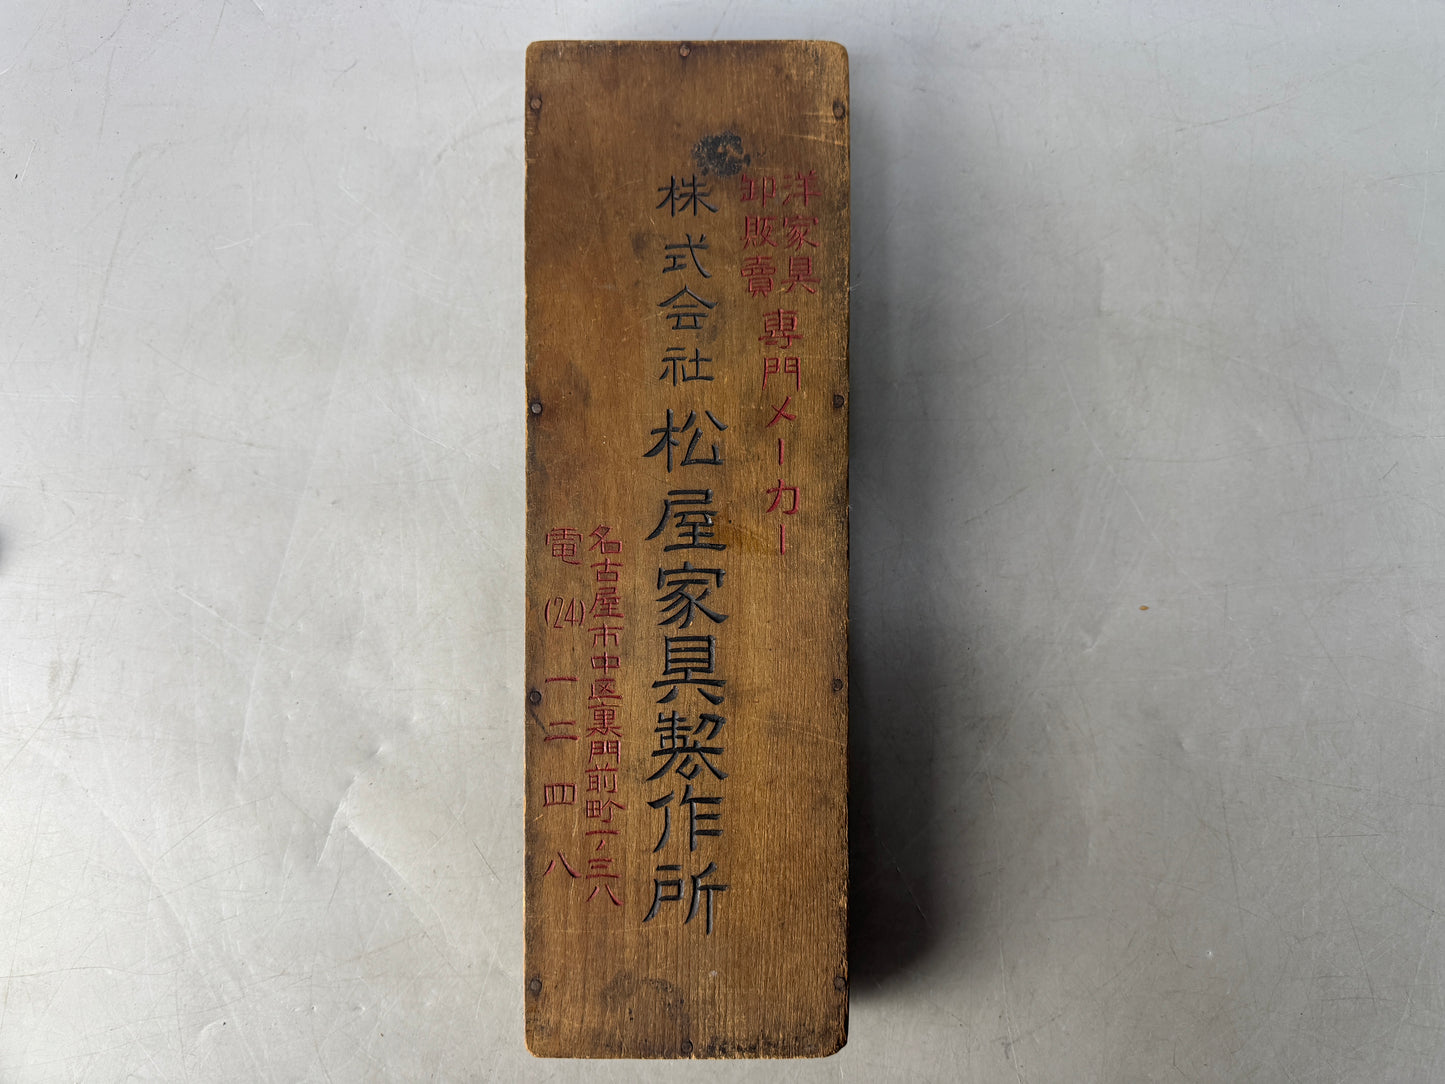 洋家具
卸販賣
専門メーカー
株式会社松屋家具製作所
名古屋市中区裏門前町一ノ三八
電(24)一二四八